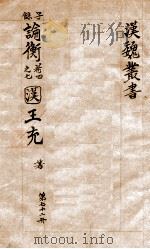 漢魏叢書
子餘
論衡 卷四之七
漢 王充 著
第七十八冊